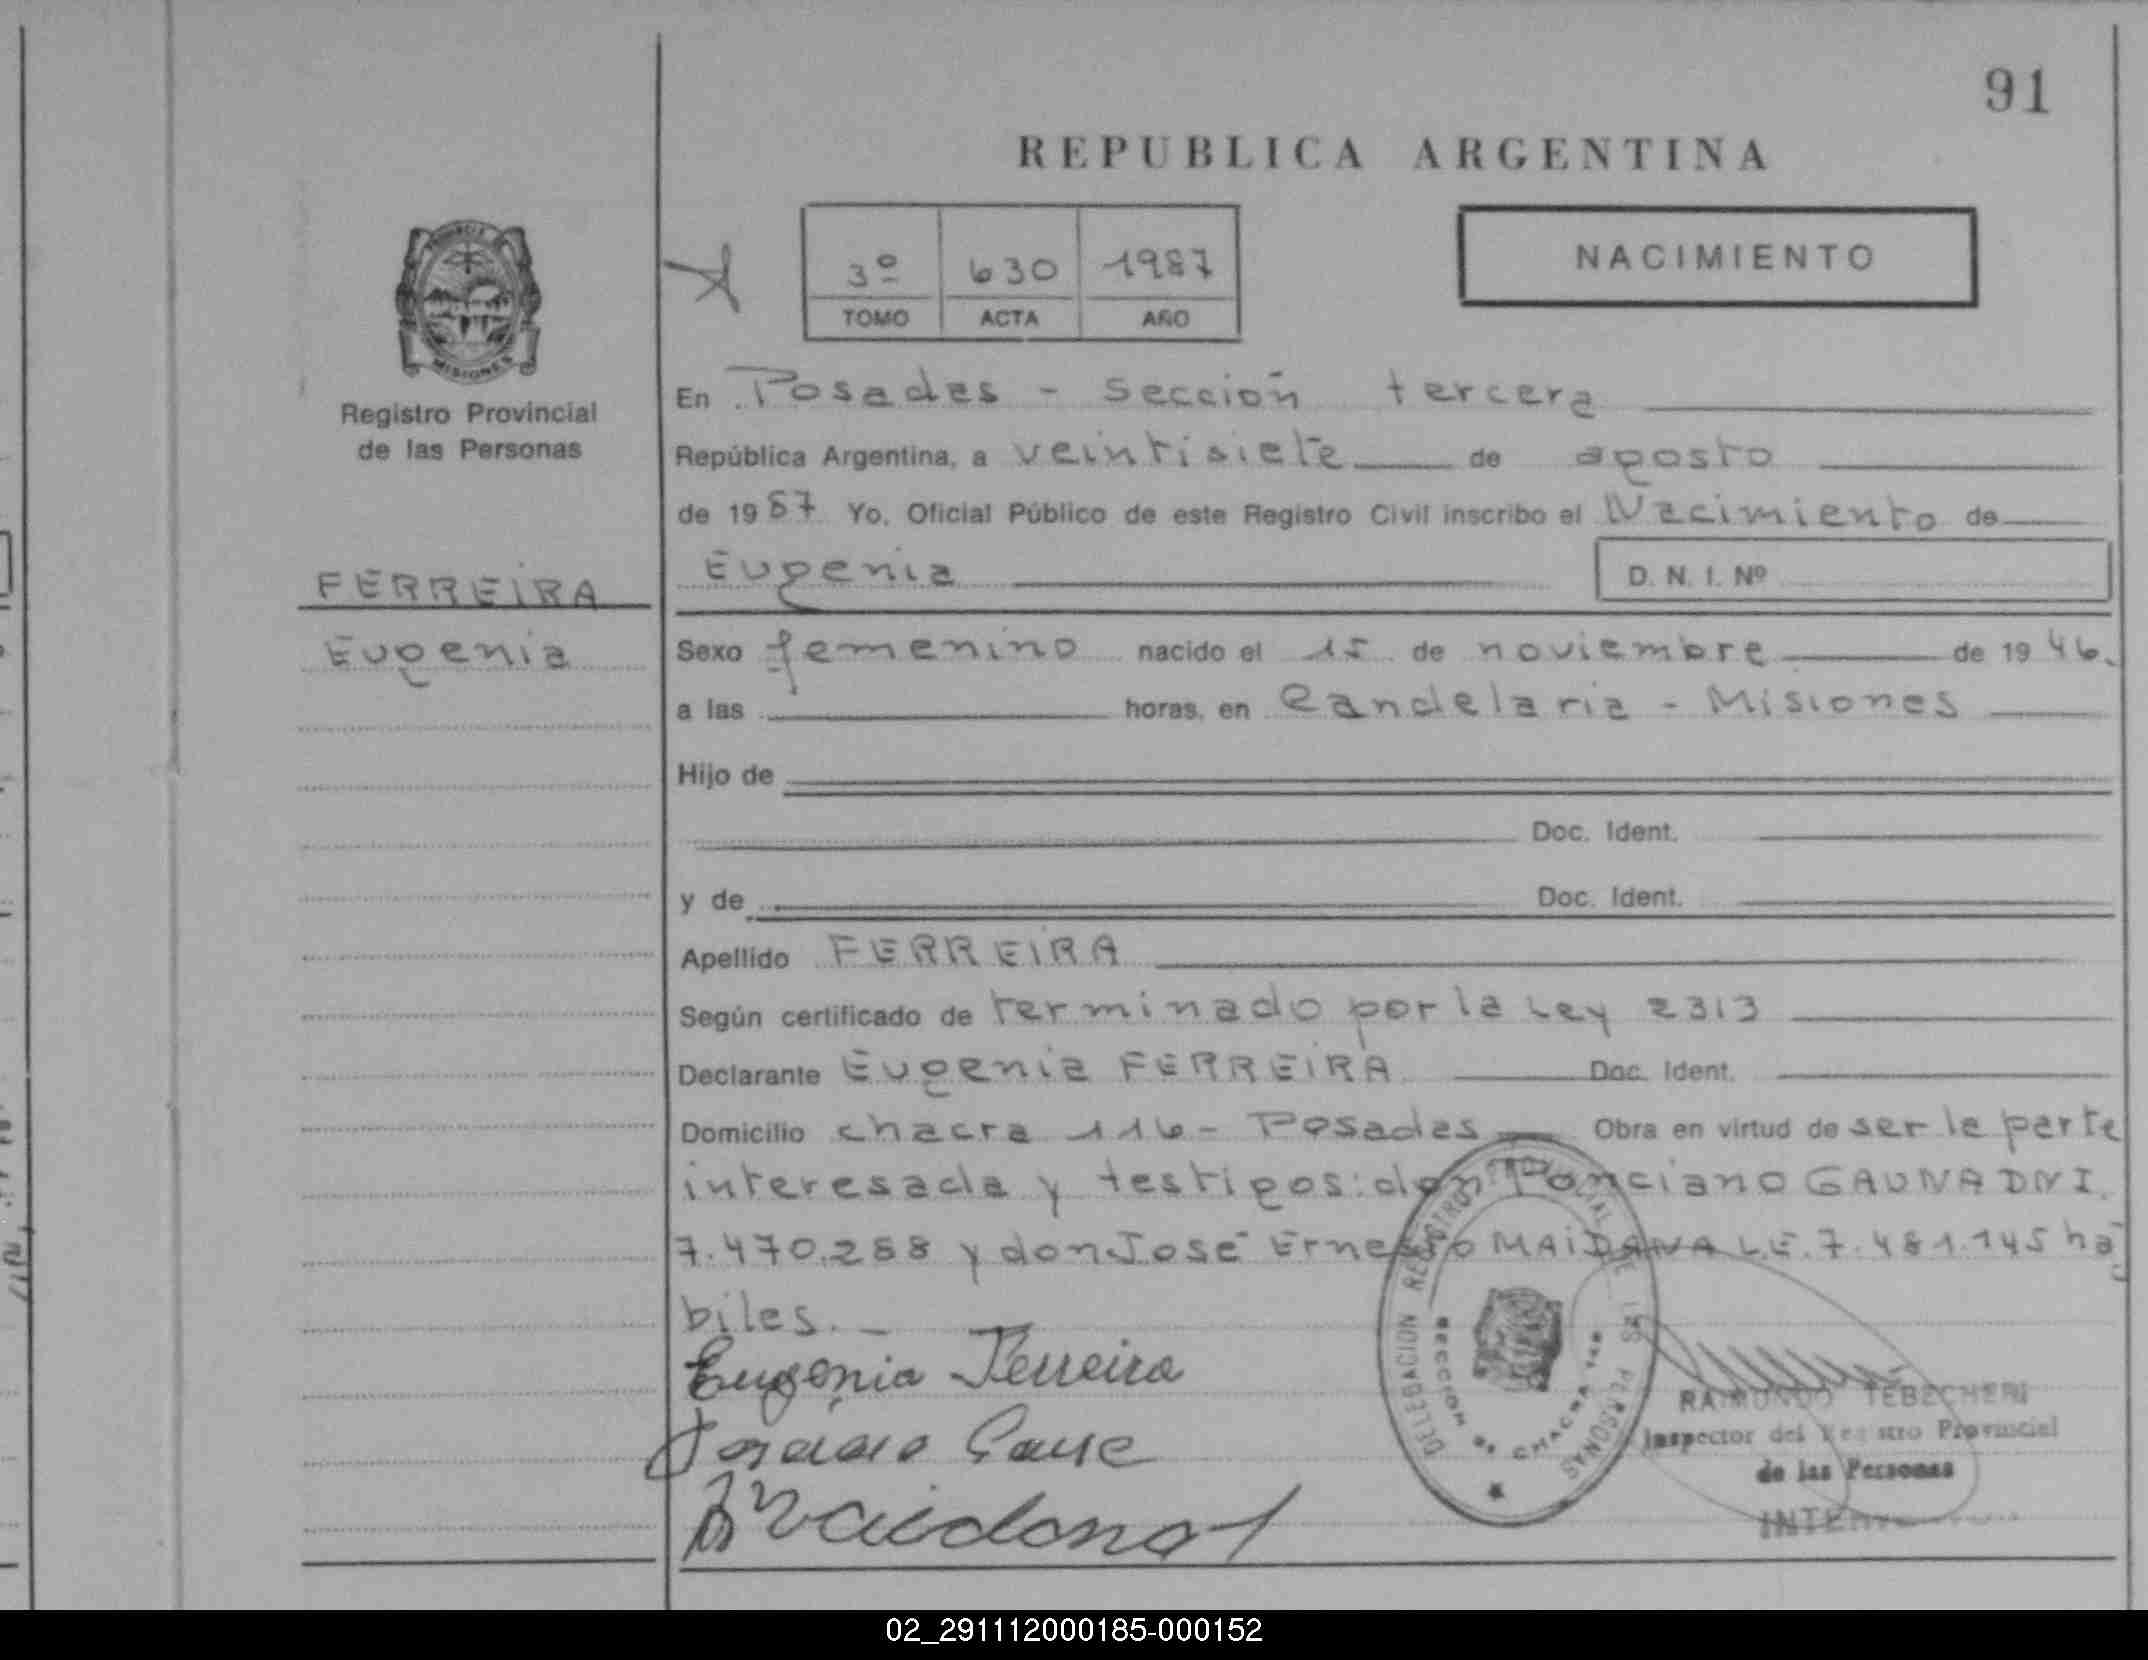 91
REPUBLICA ARGENTINA
NACIMIENTO
3º 630 1987
TOMO ACTA AÑO
MISIONES
Registro Provincial
de las Personas
FERREIRA
Eugenia
En Posadas - sección tercera
República Argentina, a veintisiete de agosto
de 1987 Yo, Oficial Público de este Registro Civil inscribo el Nacimiento de
Eugenia D. N. I. Nº
Sexo femenino nacido el 15 de noviembre de 1946.
a las horas, en Candelaria - Misiones
Hijo de
Doc. Ident.
y de Doc. Ident.
Apellido FERREIRA
Según certificado de terminado por la Ley 2313
Declarante Eugenia FERREIRA Doc. Ident.
Domicilio chacra 116 - Posadas Obra en virtud de ser la parte
interesada y testigos: don Ponciano GAUNA DNI.
7.470.288 y don José Ernesto MAIDANA L.E. 7.481.145 há
biles. _
Eugenia Ferreira
DELEGACION REGISTRO PROVINCIAL DE LAS PERSONAS
SECCION 3a CHACRA
RAIMUNDO TEBECHERI
Inspector del Registro Provincial
de las Personas
02_291112000185-000152